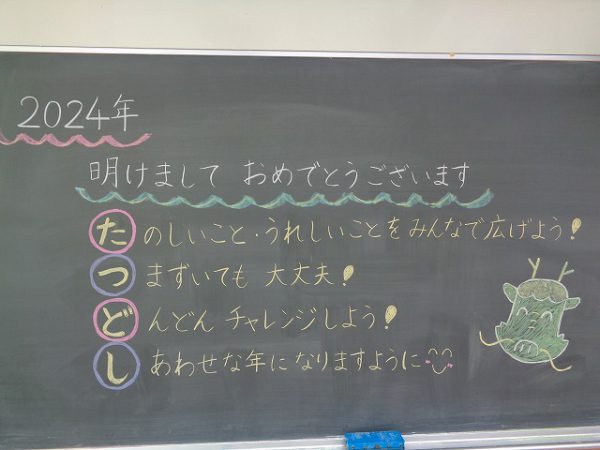 2024年
明けまして おめでとうございます
たのしいこと・うれしいことをみんなで広げよう!
つまずいても 大丈夫!
どんどん チャレンジしよう!
しあわせな年になりますように